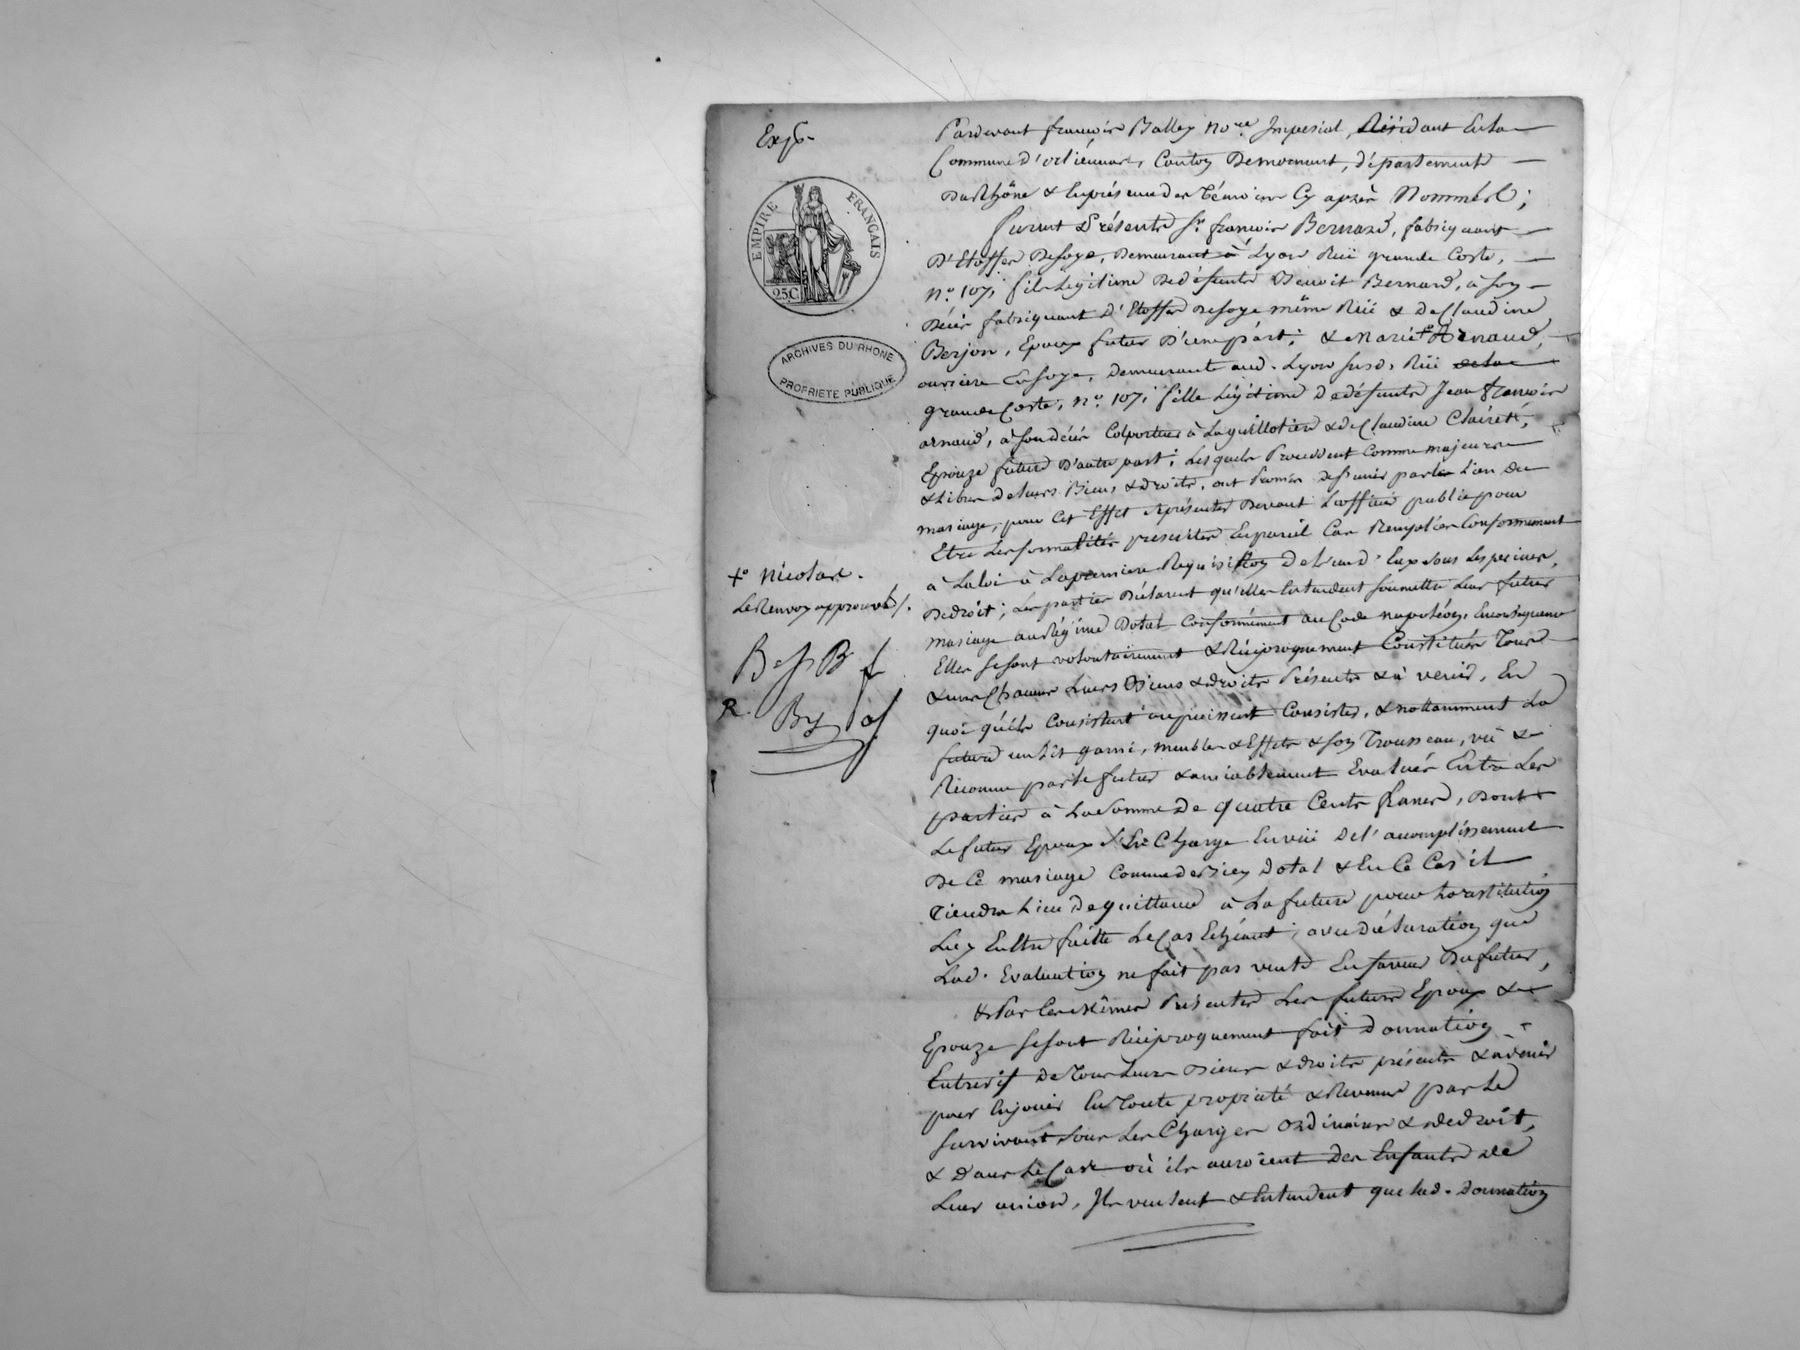 Exp.
EMPIRE FRANÇAIS
25C
ARCHIVES DU RHONE
PROPRIETE PUBLIQUE
+° Nicolas.
Le Renvoy approuvé /.
B f B f
R. By
Pardevant françois Balley No.re Imperial, Résidant En la
Commune d'orliénas, Canton De mornant, département
Du Rhône & En présence des témoins Cy après Nommés;
furent Présents Sr. françois Bernard, fabriquant
D'Etoffes De soye, Demeurant à Lyon Rüe grande Coste,
N.° 107, fils Légitime De défunts Benoit Bernard, à son
Décès fabriquant D'Etoffes De soye même Rüe & De Claudine
Berjon, Epoux futur D'une part; & Marie +° Arnaud,
ouvriere En soye, Demeurante aud. Lyon susd. Rüe de la
grande Coste, N.° 107, fille Légitime De défunts Jean françois
arnaud, à son décès Colporteur à La guillotiere & de Claudine Clairet,
Epouze future D'autre part; Lesquels Procédent Comme majeurs
& Libres De Leurs Biens & droits, ont Promis De s'unir par le Lien du
mariage, pour Cet Effet se présenter Devant L'officier public pour
Etre Les formalités prescrites En pareil Cas Remplies Conformément
à La loi à La premiere Requisition De L'un d'Eux sous Les peines
De droit; Les parties Déclarent qu'elles Entendent soumettre Leur futur
mariage au Régime Dotal Conformément au Code napoléon, En conséquence
Elles se sont volontairement & Réciproquement Constitués Tous
& uns Chacuns Leurs Biens & droits Présents & à venir, En
quoi qu'ils Consistent ou puissent Consister, & notamment La
future un Lit garni, meubles & Effets & son Trousseau, vu &
Reconnu par le futur & amiablement Evalués Entre Les
parties à La Somme De quatre Cents francs, Dont
Le futur Epoux s'En Charge En vüe De L'accomplissement
De Ce mariage Comme de Bien Dotal & En Ce Cas il
Tiendra Lieu De quittance à La future pour La restitution
Luy En Etre faitte Le Cas Echéant, avec Déclaration que
Lad. Evaluation ne fait pas vente En faveur Du futur,
& Par Ces Mêmes Présentes Les futurs Epoux &
Epouze se sont Réciproquement fait Donnation
Entrevif De Tous Leurs Biens & droits présents & à venir
pour En jouir En Toute propriété & Revenus par Le
survivant sous Les Charges ordinaires & de droit,
& Dans Le Cas où ils auroient Des Enfants de
Leur union, Ils veulent & Entendent que Lad. Donnation